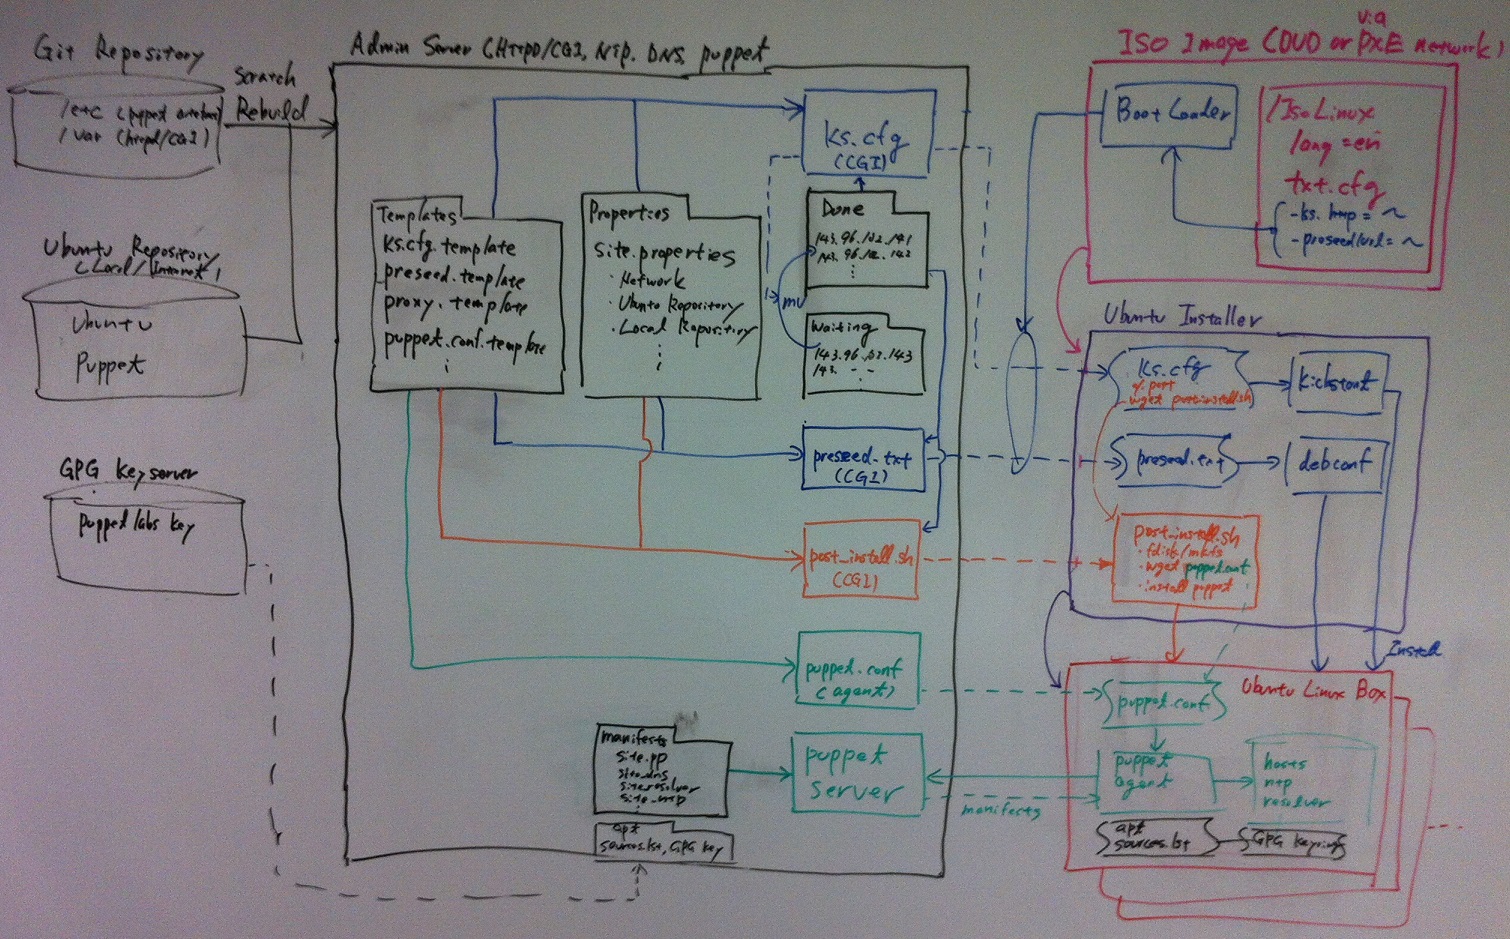 Git Repository
/etc (puppet
/var (httpd/CGI)
Scratch
Rebuild
Ubuntu Repository
(Local/Internet)
Ubuntu
Puppet
GPG Keyserver
puppet labs key
Admin Server (HTTPD/CGI, NTP, DNS, puppet
Templates
ks.cfg.template
preseed.template
proxy.template
puppet.conf.template
Properties
site.properties
・Network
・Ubuntu Repository
・Local Repository
ks.cfg
(CGI)
Done
143.96.152.141
143.96.152.142
mv
Waiting
143.96.152.143
143.
preseed.txt
(CGI)
post_install.sh
(CGI)
puppet.conf
(agent)
manifests
site.pp
site.dns
site.resolver
site_ntp
puppet
server
apt
sources.lst, GPG key
manifests
via
ISO Image (DVD or PXE network)
Boot Loader
/IsoLinux
lang=en
txt.cfg
-ks.http=~
-preseed/url=~
Ubuntu Installer
ks.cfg
%.post
wget postinstall.sh
kickstart
preseed.txt
debconf
post_install.sh
・fdisk/mkfs
・wget puppet.conf
・install puppet
Install
Ubuntu Linux Box
puppet.conf
puppet
agent
hosts
ntp
resolver
apt
sources.lst
GPG keyrings